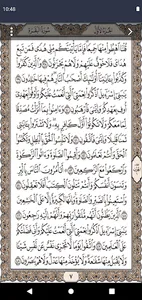 10:48
سورة البقرة
قُلْنَا اهْبِطُوا مِنْهَا جَمِيعًا فَإِمَّا يَأْتِيَنَّكُم مِّنِّي هُدًى فَمَن تَبِعَ
هُدَايَ فَلَا خَوْفٌ عَلَيْهِمْ وَلَا هُمْ يَحْزَنُونَ وَالَّذِينَ كَفَرُوا
وَكَذَّبُوا بِآيَاتِنَا أُولَٰئِكَ أَصْحَابُ النَّارِ هُمْ فِيهَا خَالِدُونَ
يَا بَنِي إِسْرَائِيلَ اذْكُرُوا نِعْمَتِيَ الَّتِي أَنْعَمْتُ عَلَيْكُمْ وَأَوْفُوا بِعَهْدِي
أُوفِ بِعَهْدِكُمْ وَإِيَّايَ فَارْهَبُونِ وَآمِنُوا بِمَا أَنزَلْتُ مُصَدِّقًا
لِّمَا مَعَكُمْ وَلَا تَكُونُوا أَوَّلَ كَافِرٍ بِهِ وَلَا تَشْتَرُوا بِآيَاتِي ثَمَنًا
قَلِيلًا وَإِيَّايَ فَاتَّقُونِ وَلَا تَلْبِسُوا الْحَقَّ بِالْبَاطِلِ وَتَكْتُمُوا
الْحَقَّ وَأَنتُمْ تَعْلَمُونَ وَأَقِيمُوا الصَّلَاةَ وَآتُوا الزَّكَاةَ وَارْكَعُوا
مَعَ الرَّاكِعِينَ أَتَأْمُرُونَ النَّاسَ بِالْبِرِّ وَتَنسَوْنَ أَنفُسَكُمْ
وَأَنتُمْ تَتْلُونَ الْكِتَابَ أَفَلَا تَعْقِلُونَ وَاسْتَعِينُوا بِالصَّبْرِ
وَالصَّلَاةِ وَإِنَّهَا لَكَبِيرَةٌ إِلَّا عَلَى الْخَاشِعِينَ الَّذِينَ يَظُنُّونَ
أَنَّهُم مُّلَاقُو رَبِّهِمْ وَأَنَّهُمْ إِلَيْهِ رَاجِعُونَ يَا بَنِي إِسْرَائِيلَ
اذْكُرُوا نِعْمَتِيَ الَّتِي أَنْعَمْتُ عَلَيْكُمْ وَأَنِّي فَضَّلْتُكُمْ
عَلَى الْعَالَمِينَ وَاتَّقُوا يَوْمًا لَّا تَجْزِي نَفْسٌ عَن نَّفْسٍ شَيْئًا
وَلَا يُقْبَلُ مِنْهَا شَفَاعَةٌ وَلَا يُؤْخَذُ مِنْهَا عَدْلٌ وَلَا هُمْ يُنصَرُونَ
٧